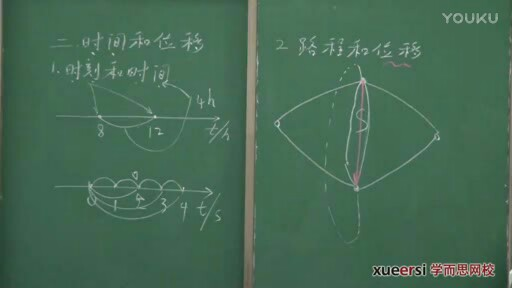 YOUKU
二.时间和位移
1.时刻和时间
4h
8 12 t/h
0 1 2 3 4 t/s
2 路程和位移
S
xueersi 学而思网校